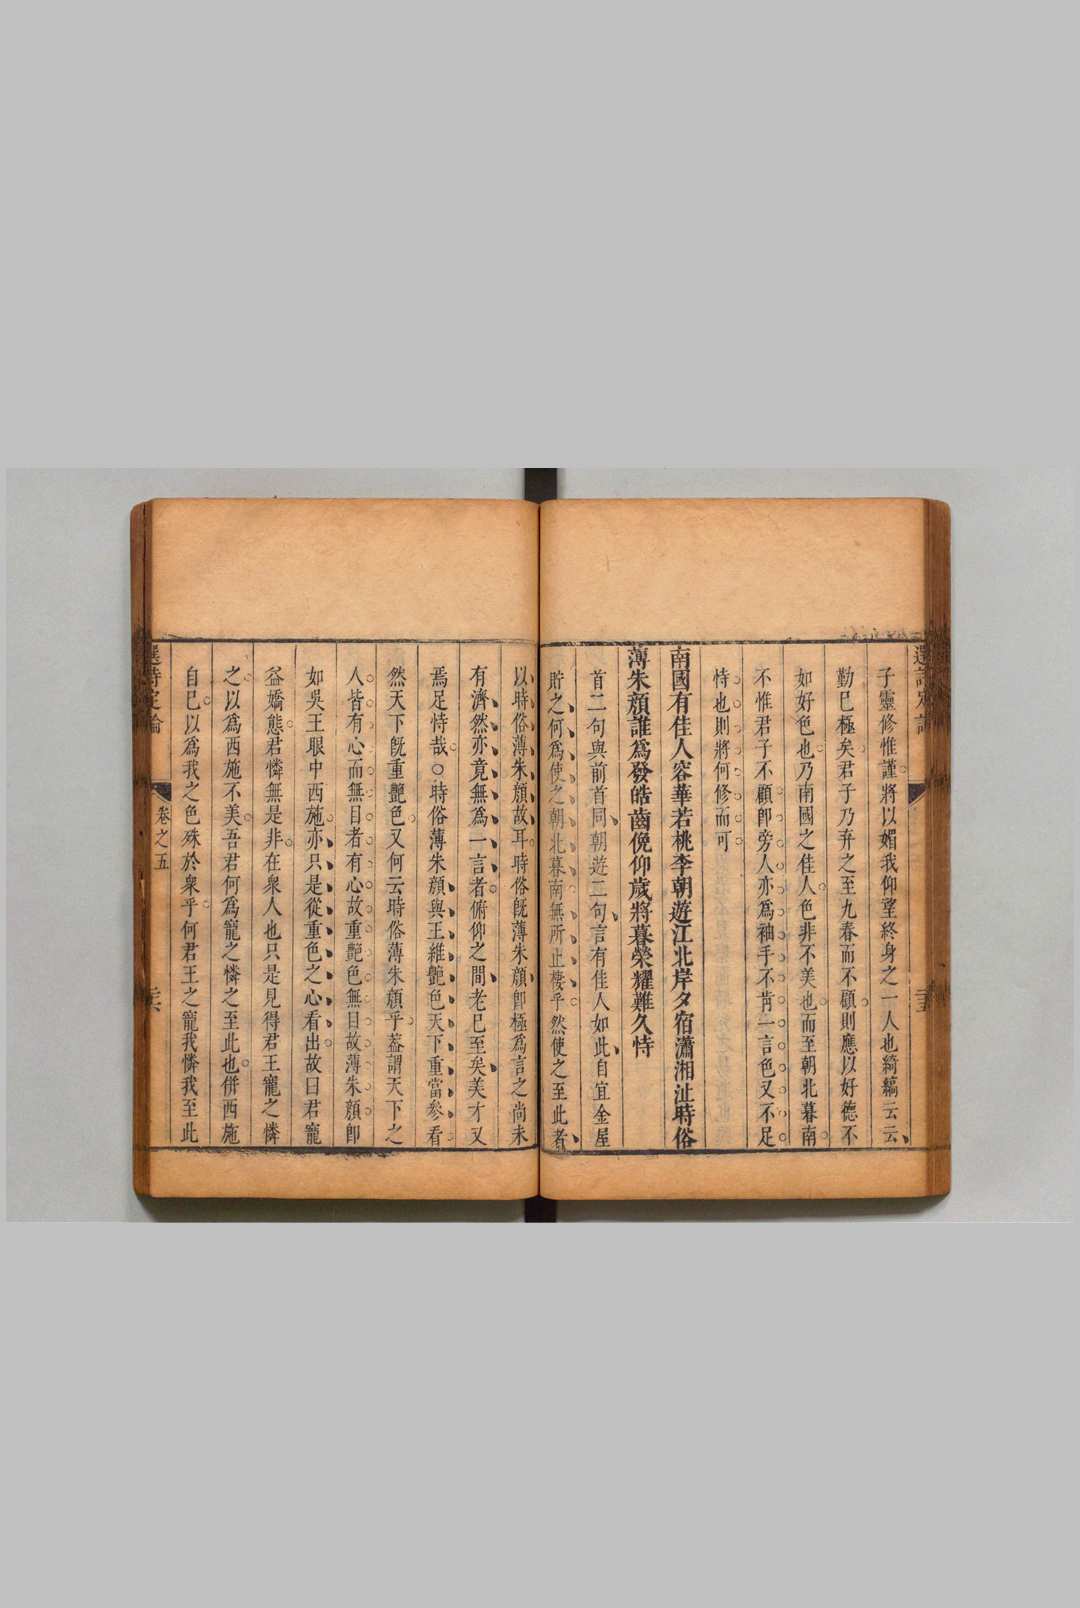 子靈修惟謹將以媚我仰望終身之一人也綺縞云云
勤已極矣君子乃弃之至九春而不顧則應以好德不
如好色也乃南國之佳人色非不美也而至朝北暮南
不惟君子不顧卽旁人亦為袖手不肯一言色又不足
恃也則將何修而可
南國有佳人容華若桃李朝遊江北岸夕宿瀟湘沚時俗
薄朱顏誰爲發皓齒俛仰歲將暮榮耀難久恃
首二句與前首同朝遊二句言有佳人如此自宜金屋
貯之何爲使之朝北暮南無所止棲乎然使之至此者
以時俗薄朱顏故耳時俗旣薄朱顏卽極爲言之尚未
有濟然亦竟無爲一言者俯仰之間老已至矣美才又
焉足恃哉○時俗薄朱顏與王維艷色天下重當參看
然天下旣重艷色又何云時俗薄朱顏乎蓋謂天下之
人皆有心而無目者有心故重艷色無目故薄朱顏卽
如吳王眼中西施亦只是從重色之心看出故曰君寵
益嬌態君憐無是非在衆人也只是見得君王寵之憐
之以爲西施不美吾君何爲寵之憐之至此也併西施
自已以爲我之色殊於衆乎何君王之寵我憐我至此
選詩定論
卷之五
二十五
二十六